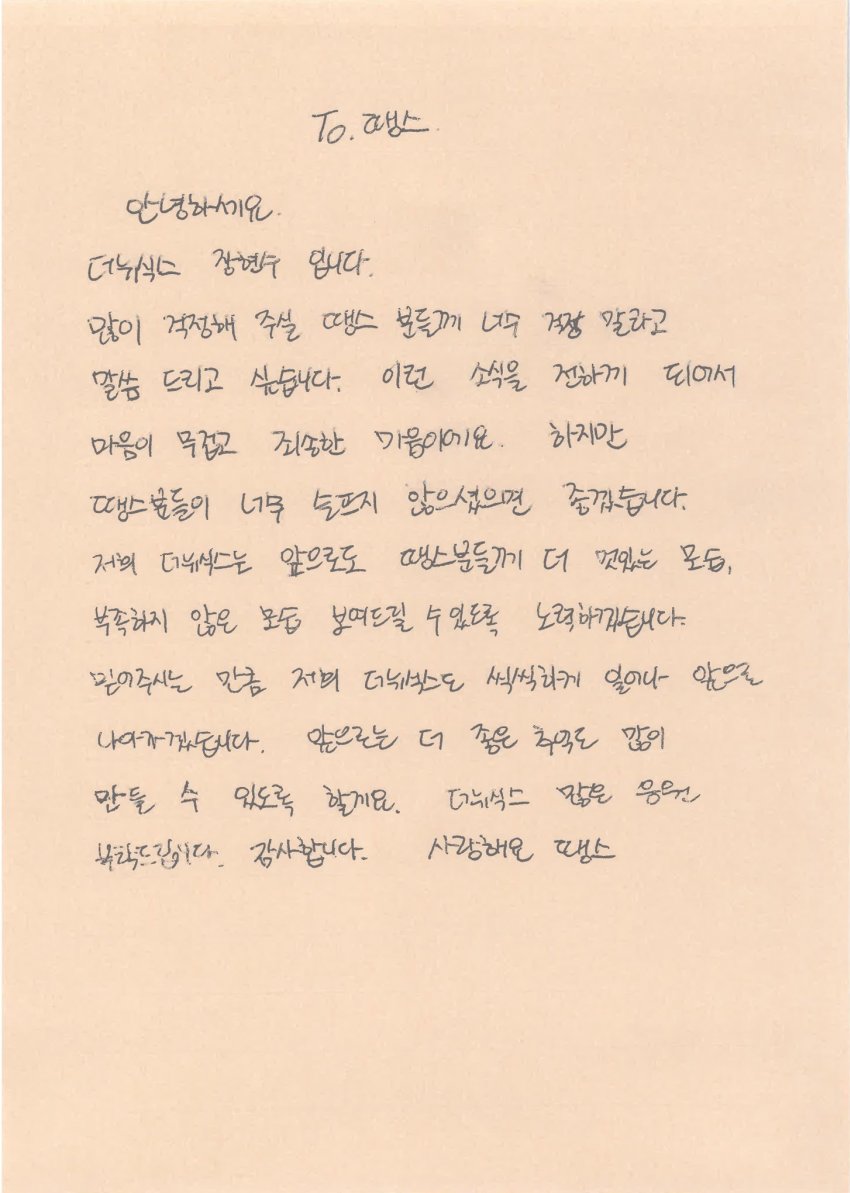 To. 땡스
안녕하세요.
더뉴식스 장현수 입니다.
많이 걱정해 주실 땡스 분들께 너무 걱정 말라고
말씀 드리고 싶습니다. 이런 소식을 전하게 되어서
마음이 무겁고 죄송한 기음이에요. 하지만
땡스분들이 너무 슬프지 않으셨으면 좋겠습니다.
저희 더뉴식스는 앞으로도 땡스분들께 더 멋있는 모습,
부족하지 않은 모습 보여드릴 수 있도록 노력하겠습니다.
믿어주시는 만큼 저희 더뉴식스도 씩씩하게 일어나 앞으로
나아가겠습니다. 앞으로는 더 좋은 추억도 많이
만들 수 있도록 할게요. 더뉴식스 많은 응원
부탁드립니다. 감사합니다. 사랑해요 땡스